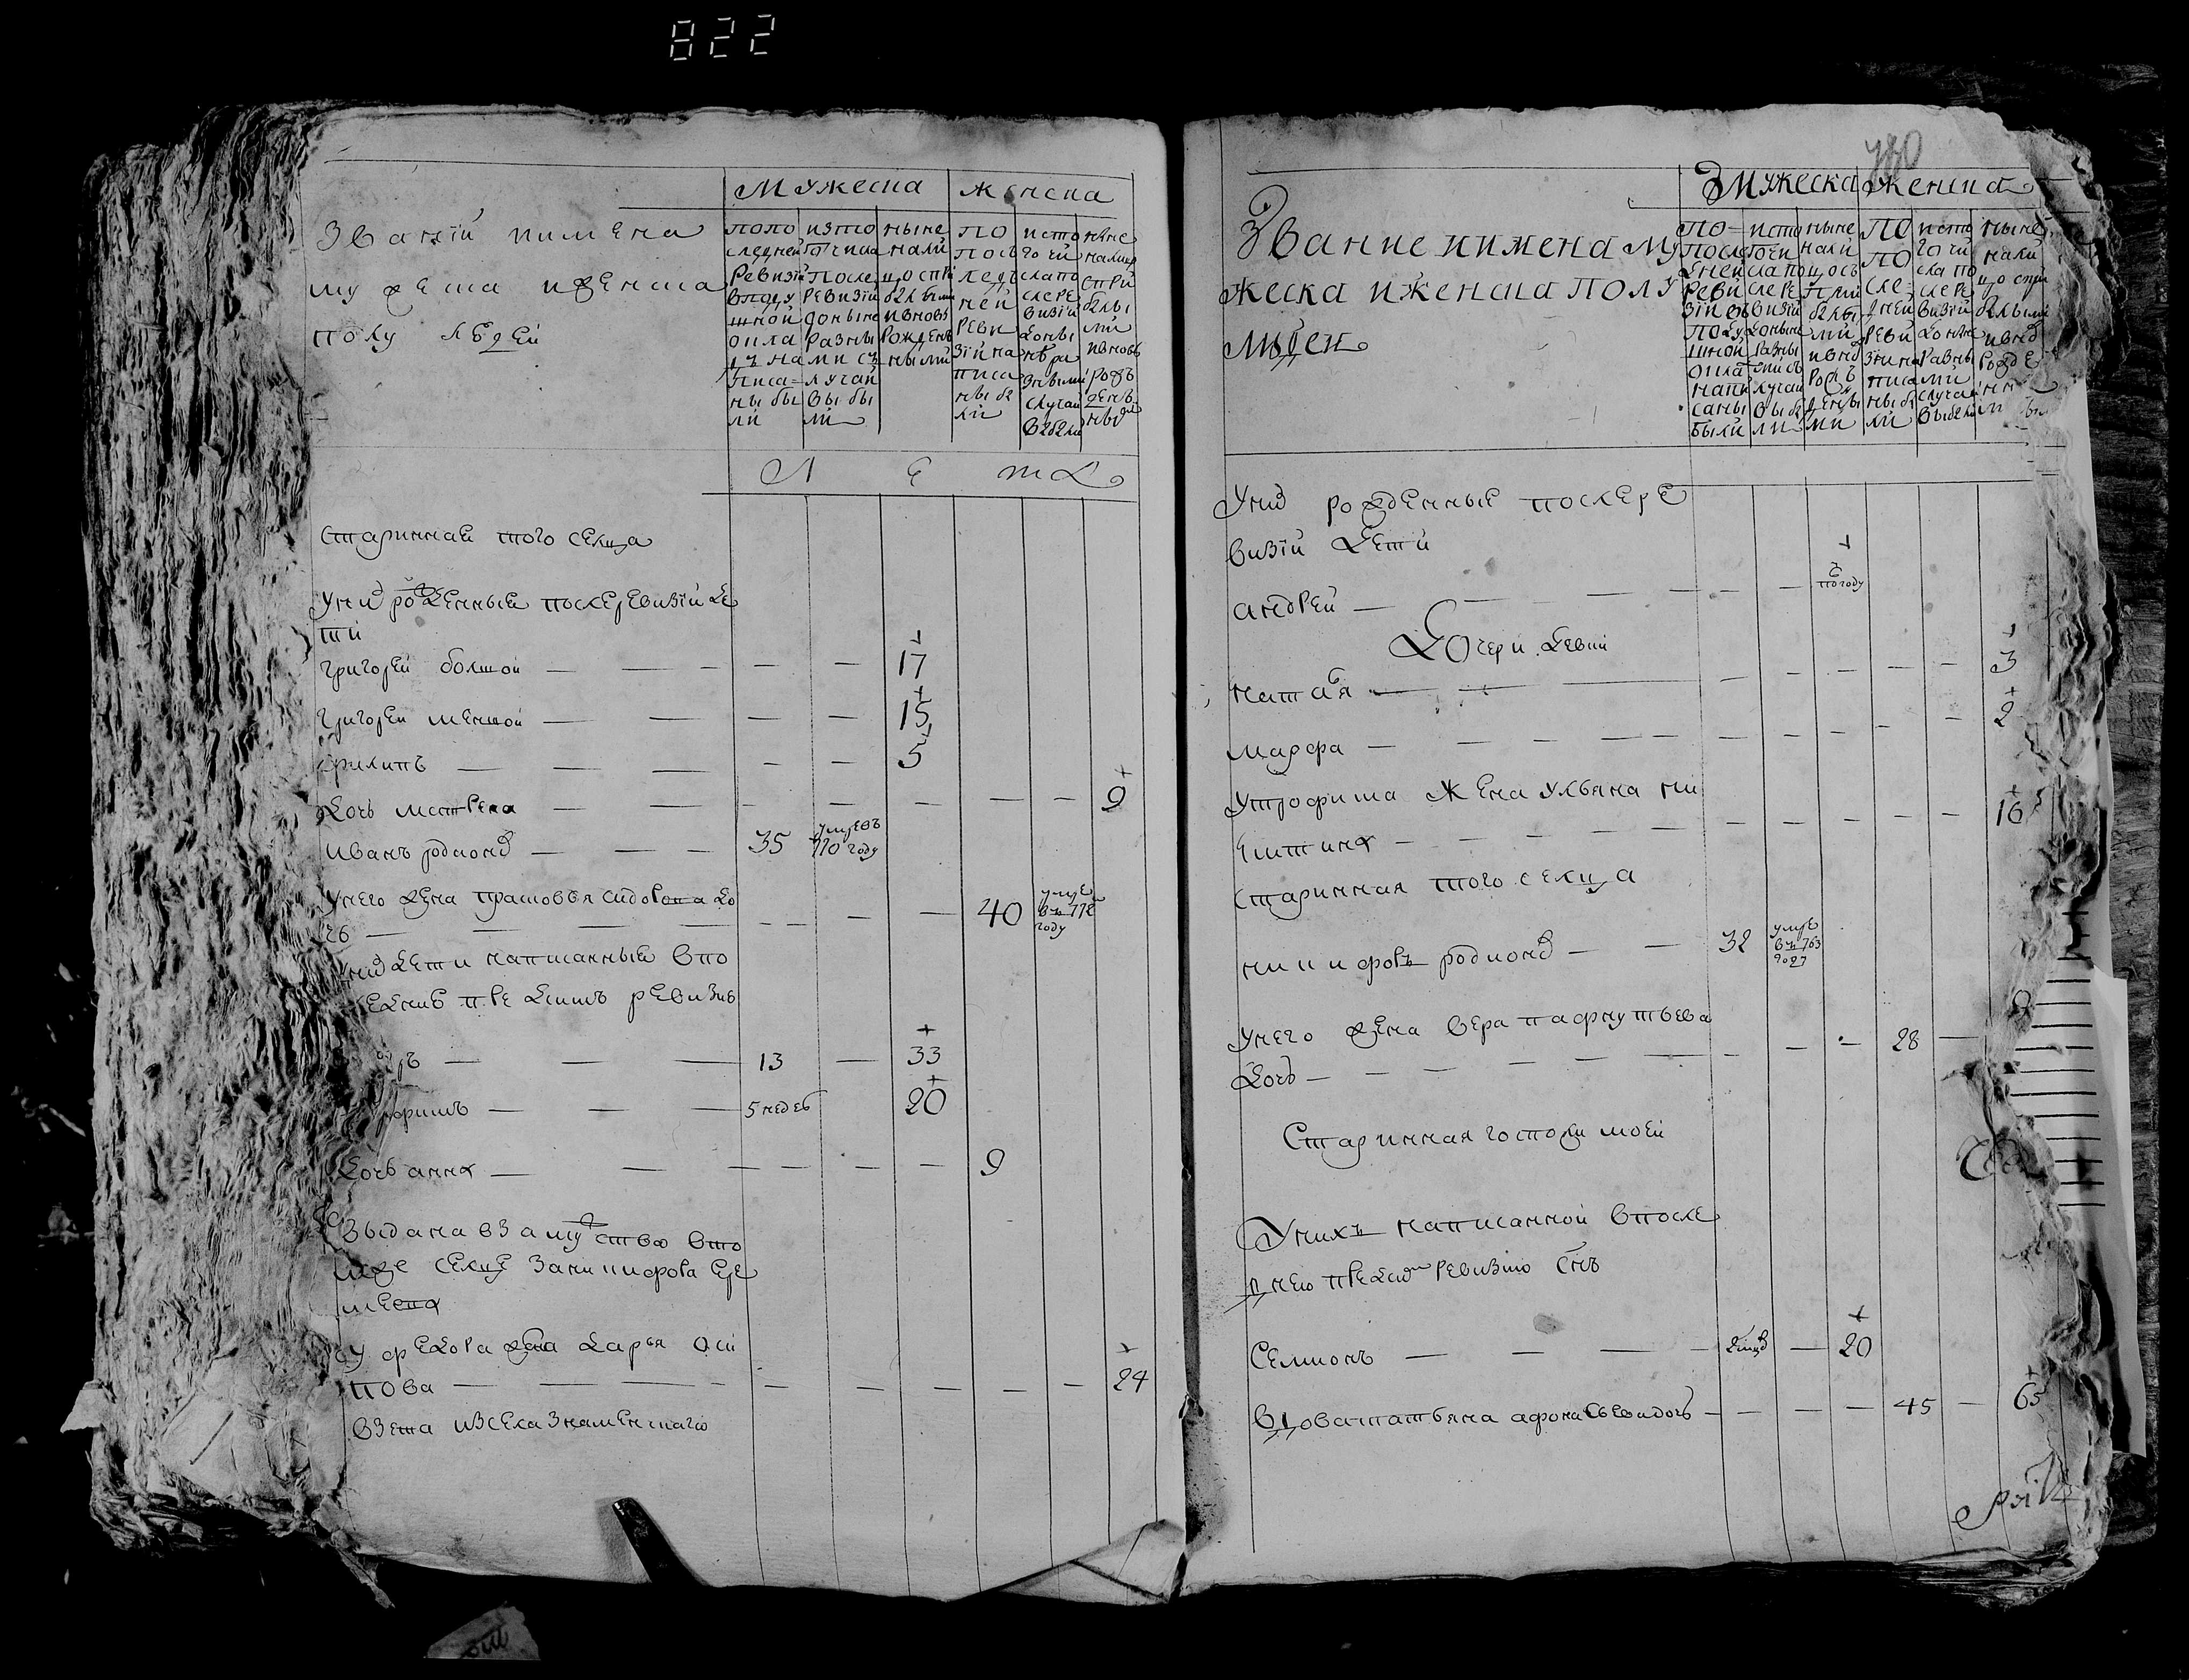 822
мужеска женска
Званїи имена
му жеска иженска
полу людей
попо
следней
ревизїи
вподу
шной
окла
дъ на
писа-
ны бы
ли
изто
го числа
после
ревизїи
доныне
разны
ми съ
лучаи
вы бы
ли
ныне
нали
цо сприбылыми
ивновь
рожден
ными
по
пос
лед
ней
реви
зїи на
писа
ны бы
ли
исто
го чи
сла по
сле ре
визїи
доны
не ра
зными
случаи
выбыли
ныне
налицо
спри
былы
ми
ивновь
рож
ден
Л е т а
старинная того сельца
уних рожденные послеревизїи де
ти
григорей болшой — 17
григореи меншой — 15
филипъ — 5
дочь матрена — 9
иванъ родионов — 35 умре въ 770 году
унего жена прасковья сидорова до
чь — 40 умре въ 772 году
них дети написанные впо
следнею пре дить ревизию
13 — 33
трофимъ — 5 недель 20
дочь анна — 9
выдана взамужство вто
мже сельце заникифора ере
меева
у федора жена дарья оси
пова — 24
взета изсела знаменскаго
780
мужеска женска
Звание иимена му
жеска иженска полу
люден
по-
после
дней
реви
зїи въ
поду
шной
оклад
напи
саны
были
исто
го чи
сла по
сле ре
визїи
доныне
разны
ми съ
лучаи
выбы
ли
ныне
нали
цо съ
при
былы
ми
ивнов
рож
денны
ми
по
по
сле
дней
реви
зїи на
писа
ны бы
ли
исто
го чи
сла по
сле ре
визїи
доныне
разны
ми
случаи
выбыли
ныне
нали
цо спри
былыми
ивнов
рожде
уних рожденные послере
визїи дети
андрей — погоду
Дочери девки
наталья — 3
марфа — 2
утрофима жена ульяна ни
китина — 16
старинная того сельца
никифоръ родионов — 32 умре въ 763 году
унего жена вера пафнутьева
дочь — 28
Старинная госпожи моей
Унихъ написанной впосле
днею пред сим ревизию сынъ
Семионъ — 20
вдова татьяна афонасьева дочь — 45 — 65